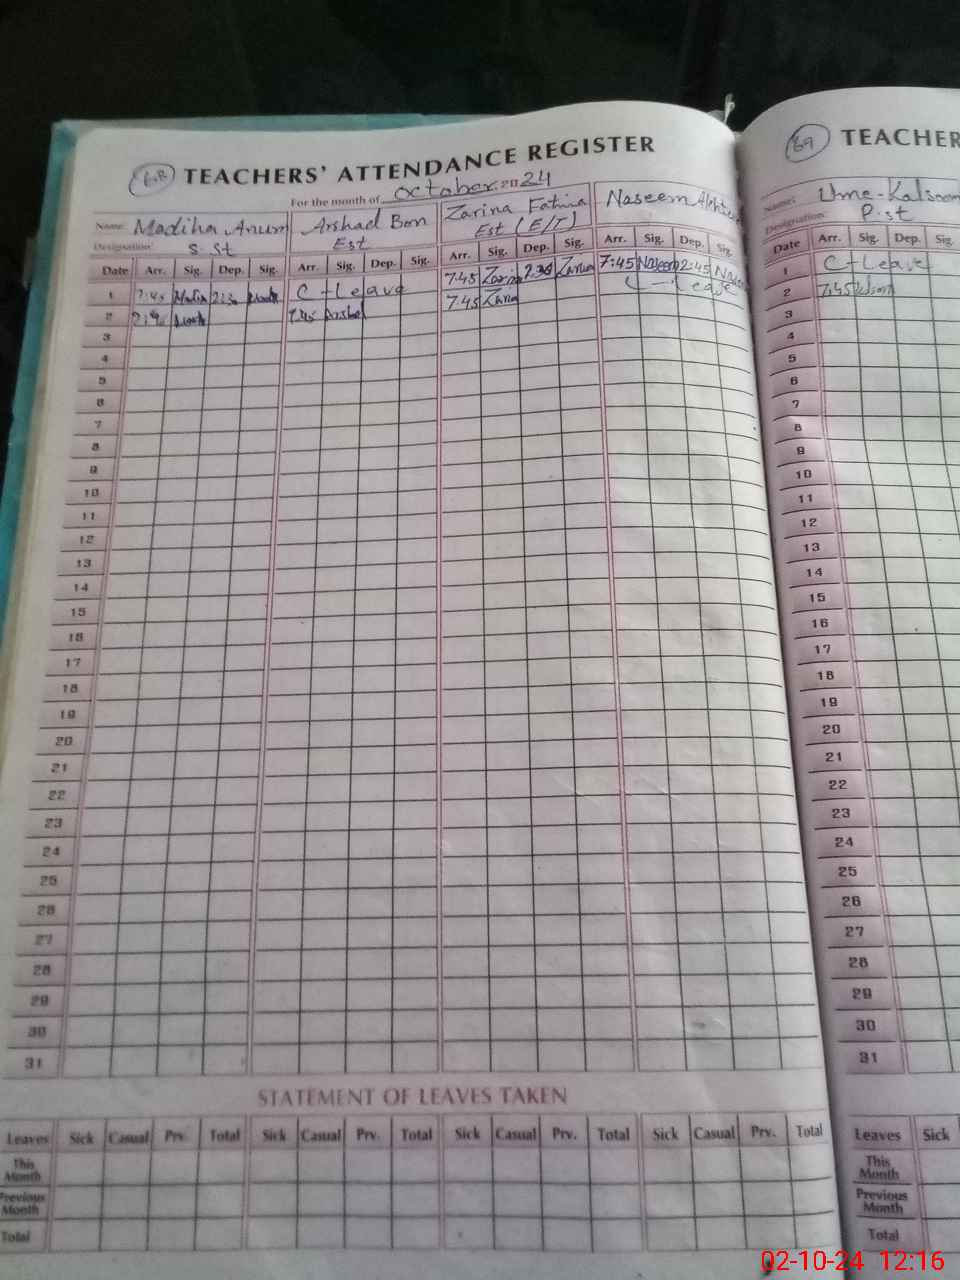 68 TEACHERS' ATTENDANCE REGISTER
For the month of October 2024
Name: Madiha Anum Arshad Zarina Fatima Naseem
Designation: S.St Est Est (E/T)
Date Arr. Sig. Dep. Sig. Arr. Sig. Dep. Sig. Arr. Sig. Dep. Sig. Arr. Sig. Dep. Sig.
1 7:45 2:30 C-Leave 7.45 Zarina 2.30 Zarina 7:45 Naseem 2:45 Naseem
2 7.45 Arshad 7.45 Zarina C-Leave
3
4
5
6
7
8
9
10
11
12
13
14
15
16
17
18
19
20
21
22
23
24
25
26
27
28
29
30
31
STATEMENT OF LEAVES TAKEN
Leaves Sick Casual Prv. Total Sick Casual Prv. Total Sick Casual Prv. Total Sick Casual Prv. Total
This
Month
Previous
Month
Total
69 TEACHER
Name: Ume-Kalsoom
Designation: P.st
Date Arr. Sig. Dep. Sig.
1 C-Leave
2 7:45
3
4
5
6
7
8
9
10
11
12
13
14
15
16
17
18
19
20
21
22
23
24
25
26
27
28
29
30
31
Leaves Sick
This
Month
Previous
Month
Total
02-10-24 12:16